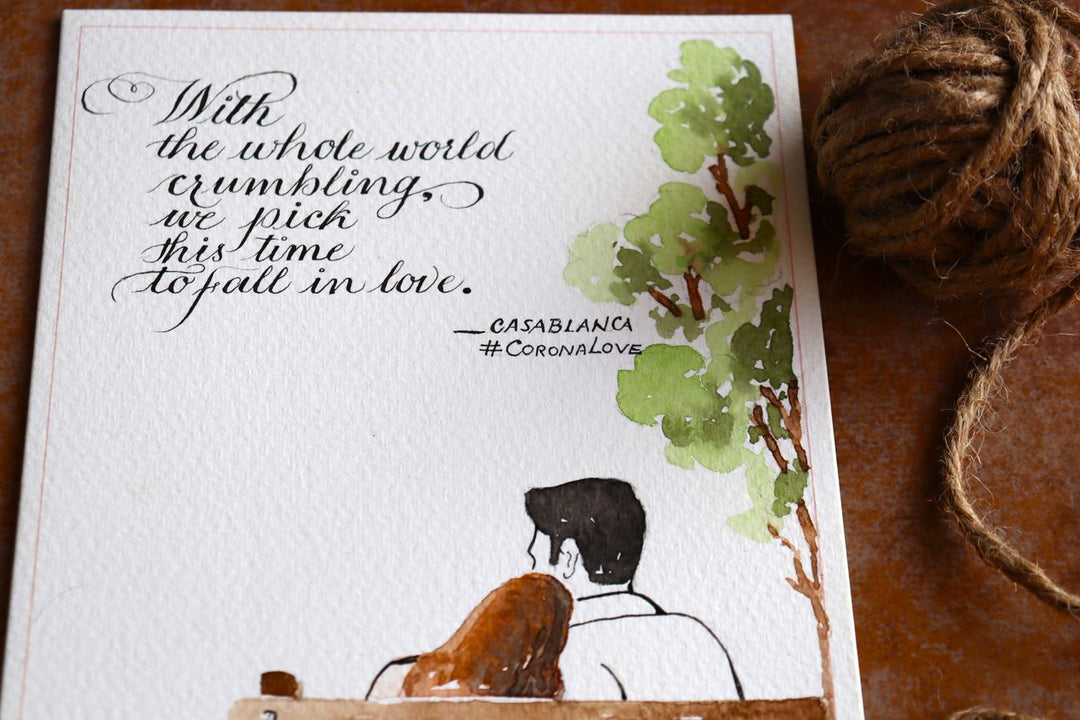 With
the whole world
crumbling,
we pick
this time
to fall in love.
_CASABLANCA
#CORONALOVE